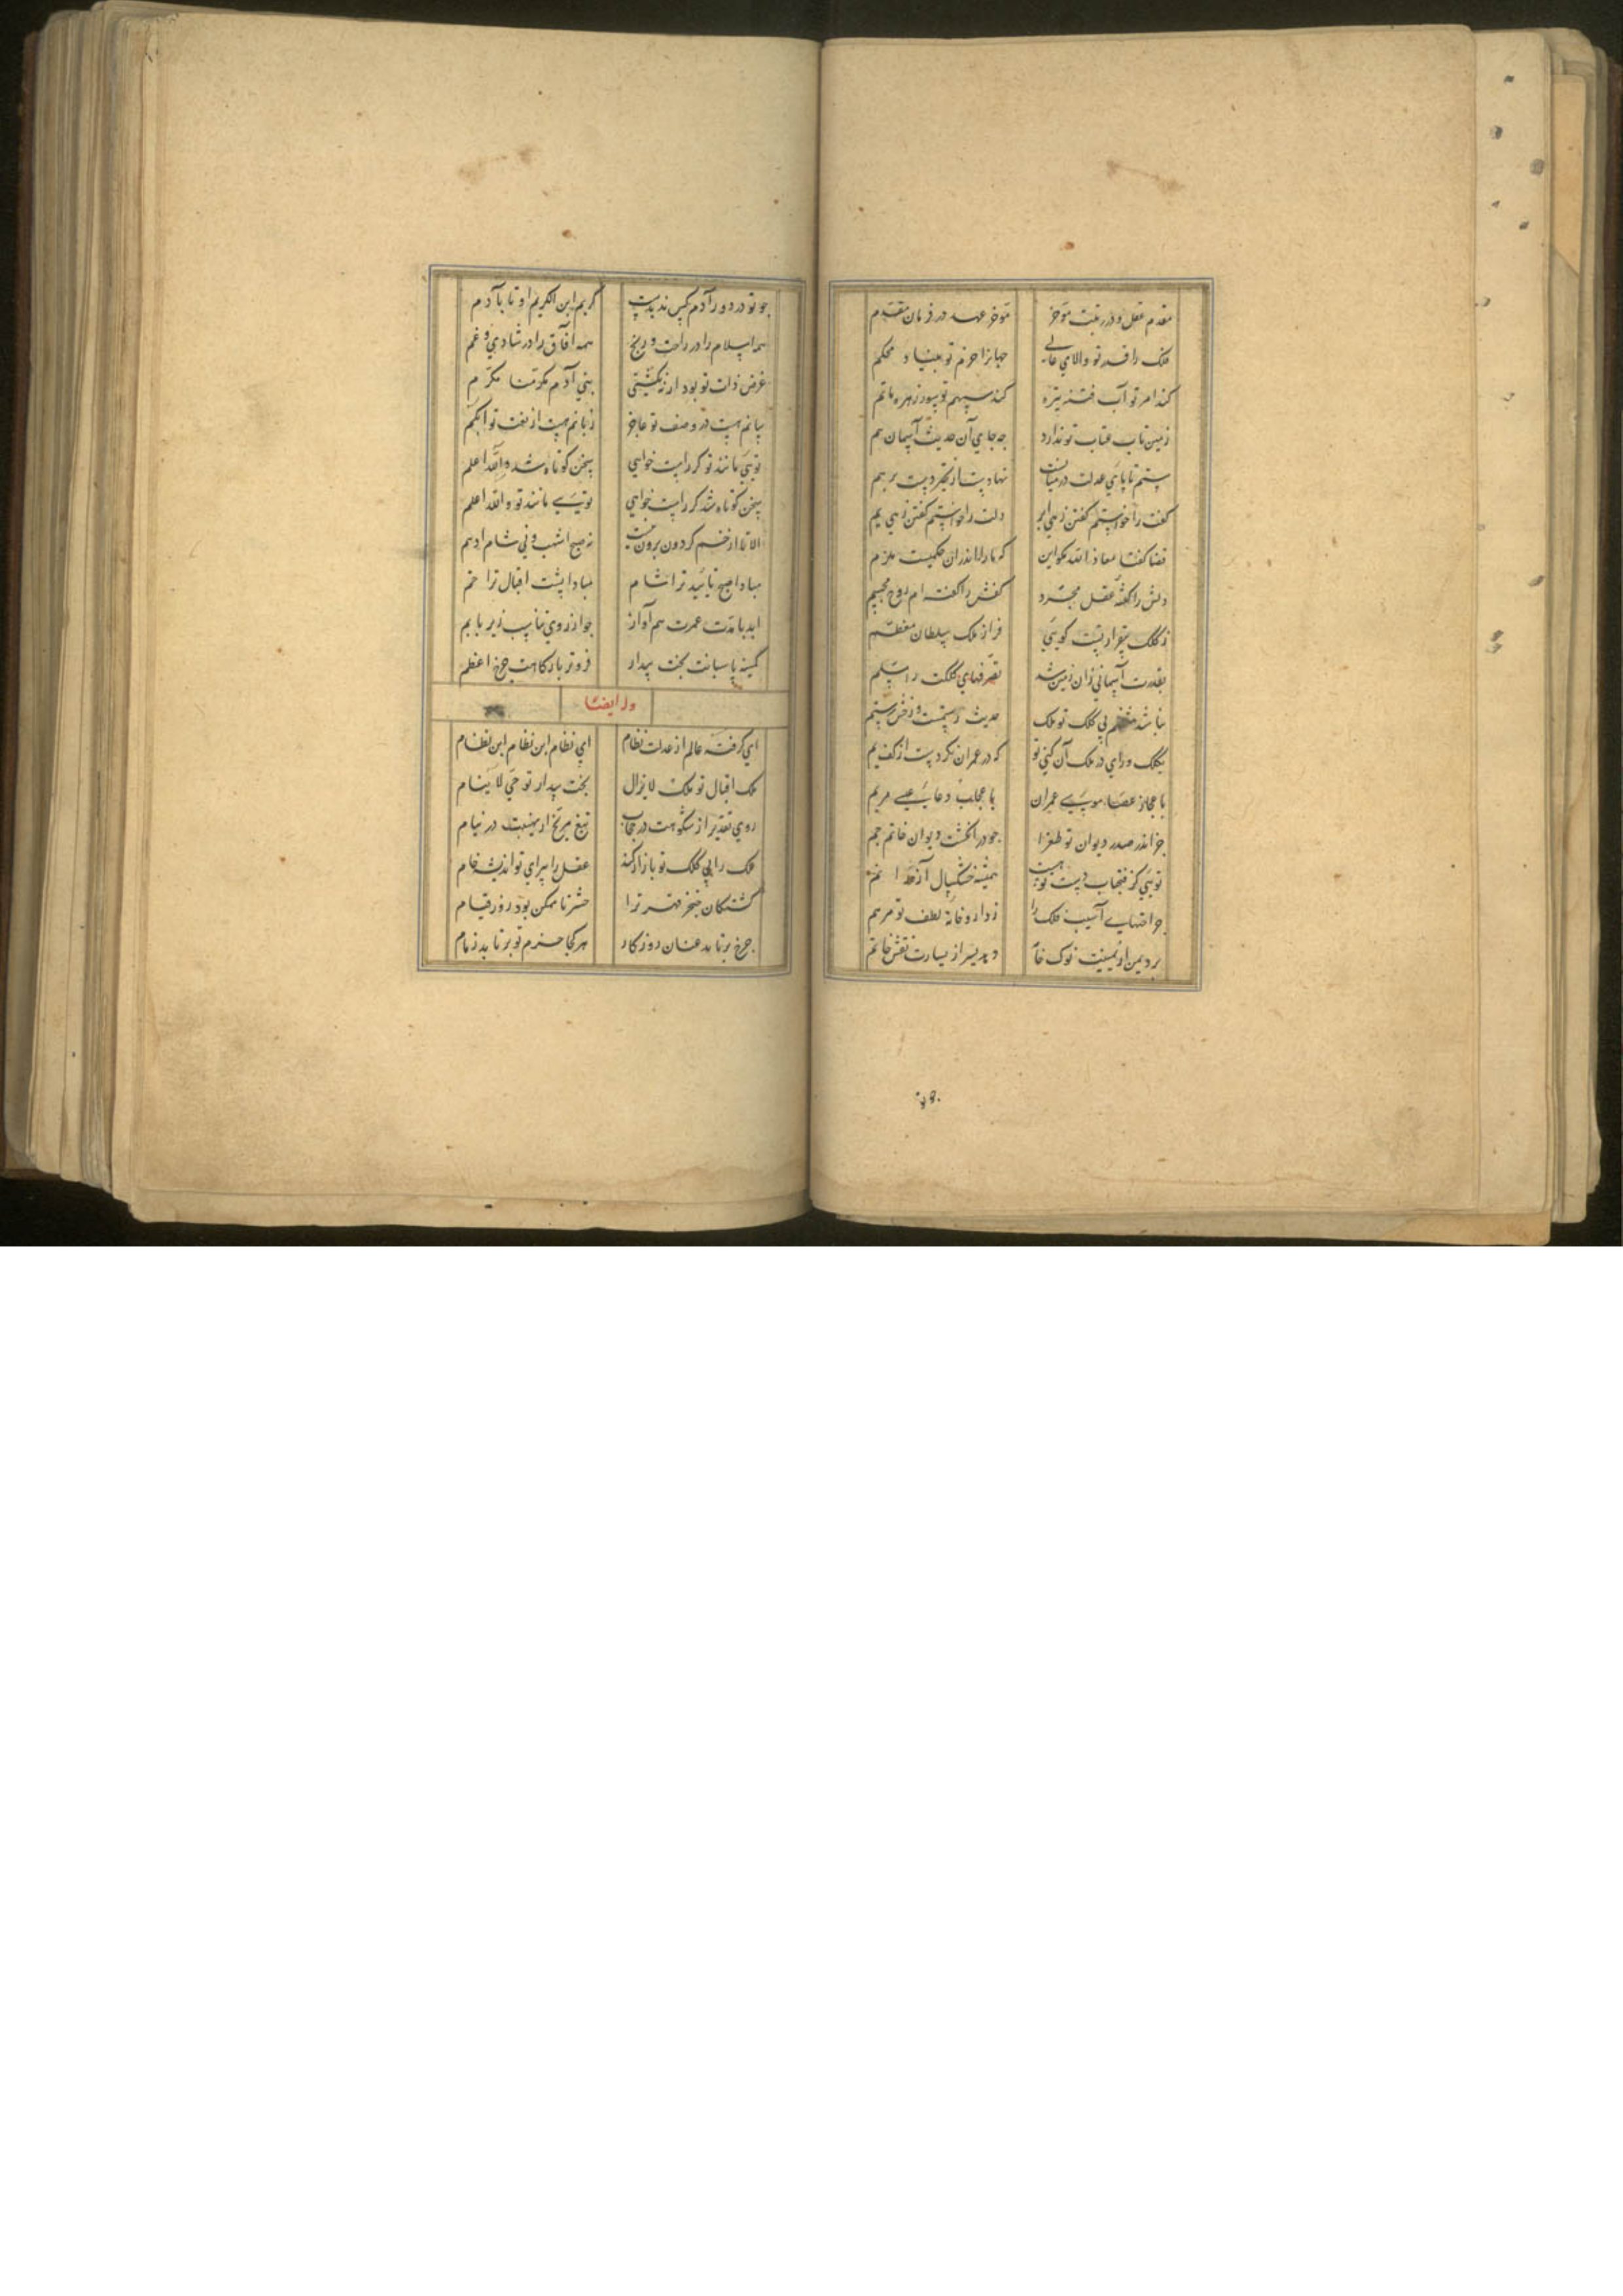 مقدم عقل و در رتبت موخر موخر عهد در فرمان مقدم
فلک را قدر تو والای عالی جهانرا حزم تو بنیاد محکم
کند امر تو آب فتنه تیره کند سهم تو سور زهره ماتم
زمین تاب عتاب تو ندارد چه جای آن حدیث آسمان هم
ستم تا پای عدلت در میانست نهادست از تحیر دست بر هم
کفت را خواستم گفتن زهی ابر دلت را خواستم گفتن زهی یم
قضا گفتا معاذ الله مکو این که ما را اندران حکمیست ملزم
دلش را گفته عقل مجرد کفش را گفته ام روح مجسم
ز کلک بیقرار تست کویی قرار ملک سلطان معظم
بقدرت آسمانی زان زمین شد تصرفهای کلکت را مسلم
نباشد منتظم بی کلک تو ملک حدیث رستمست و رخش رستم
بکلک و رای در ملک آن کنی تو که در عمران نکردست از کف یم
باعجاز عصا موسی عمران باعجاب دعا عیسی مریم
جز اندر صدر دیوان تو طغرا چو در انکشت دیوان خاتم جم
تویی کز فتح باب دست تو هست همیشه خشکسال آز را نم
جراحتهای آسیب فلک را ز داروخانه لطف تو مرهم
برد یمن از یمینت نوک خامه دهد یسر از یسارت نقش خاتم
چو تو در دور آدم کس ندیدست کریم ابن الکریم او تا بآدم
همه اسلام را در راحت و رنج همه آفاق را در شادی و غم
غرض ذات تو بود ار نه نکشتی بنی آدم بکرمنا مکرم
بیانم هست در وصف تو عاجز زبانم هست از نعت تو ابکم
تویی مانند تو کر راست خواهی سخن کوتاه شد والله اعلم
سخن کوتاه شد کر راست خواهی تویی مانند تو والله اعلم
الا تا از خم کردون برون نیست نه صبح اشهب و نی شام ادهم
مبادا صبح تایید ترا شام مبادا پشت اقبال ترا خم
ابد با مدت عمرت هم آواز چو از روی تناسب زیر با بم
کمینه پاسبانت بخت بیدار فروتر بارکاهت چرخ اعظم
وله ایضا
ای کرفته عالم از عدلت نظام ای نظام ابن نظام ابن نظام
ملک اقبال تو ملک لا یزال بخت بیدار تو حی لا ینام
روی تقدیر از شکوهت در حجاب تیغ مریخ از نهیبت در نیام
ملک را بی کلک تو بازار کند عقل را با رای تو اندیشه خام
کشتکان خنجر قهر ترا حشر ناممکن بود روز قیام
چرخ برتابد عنان روزکار هر کجا حزم تو برتابد زمام